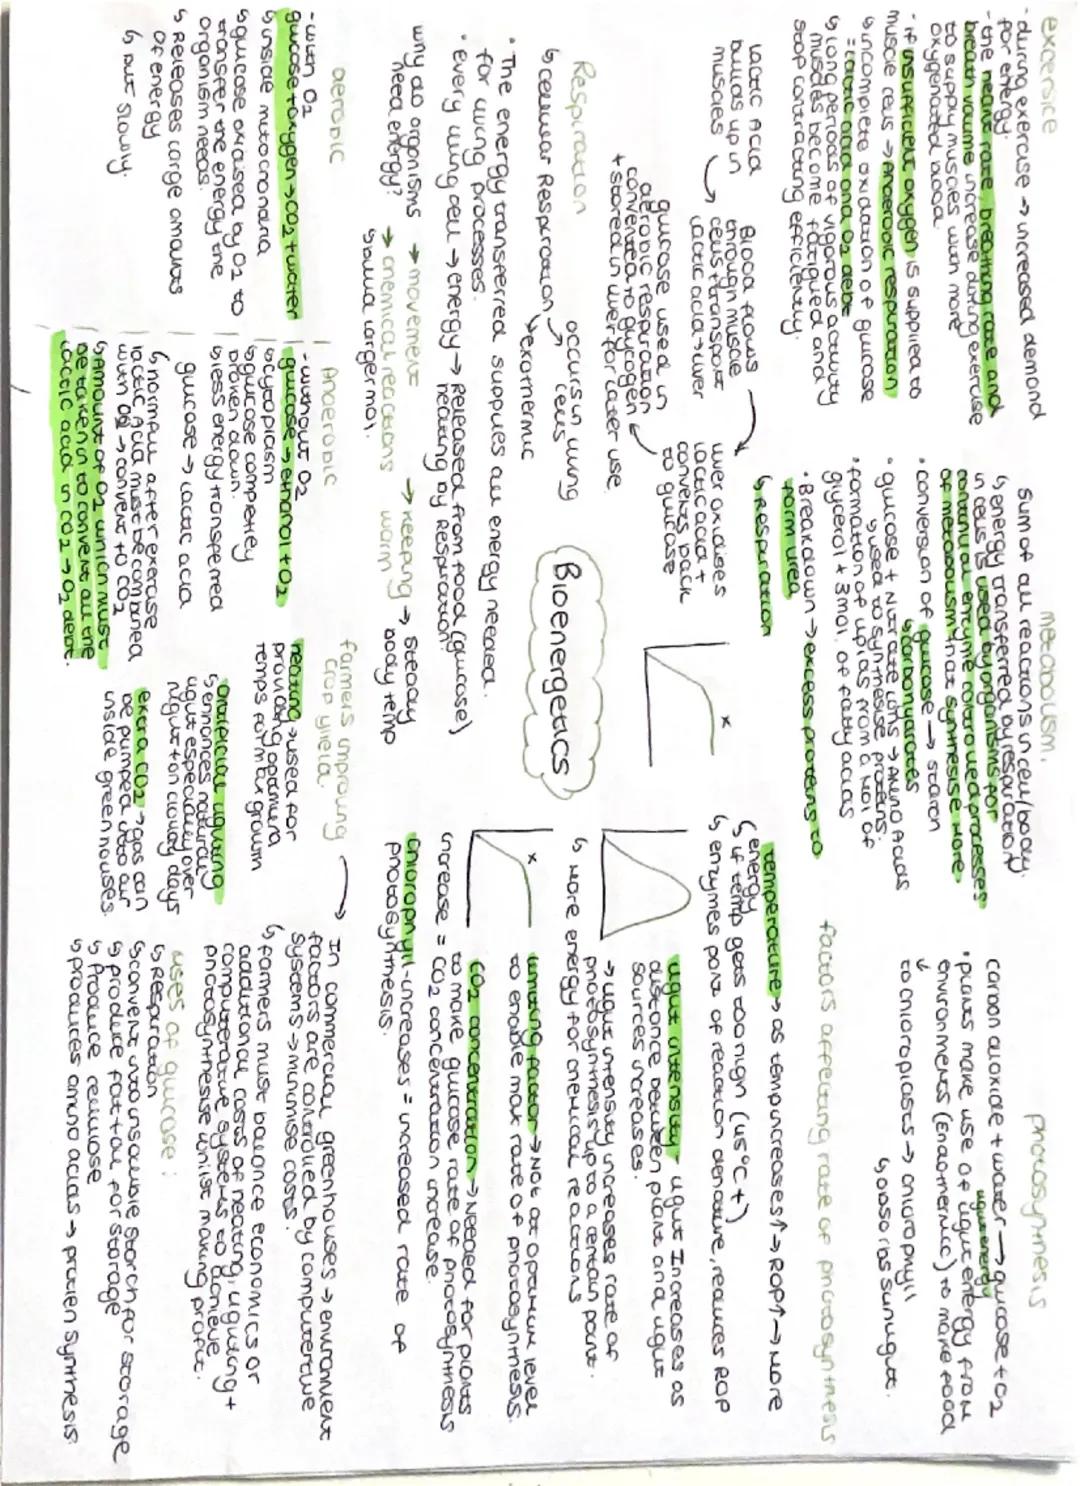 Bioenergetics
excersice
- during exercise → increased demand
for energy.
- the heart rate, breathing rate and
breath volume increase during exercise
to supply muscles with more
oxygenated blood.
- if insufficient oxygen is supplied to
muscle cells → Anaerobic respiration
↳ incomplete oxidation of glucose
= lactic acid and O2 debt
↳ long periods of vigorous activity
muscles become fatigued and
stop contracting efficiently.
lactic Acid
builds up in
muscles
Blood flows
through muscle
cells + transport
lactic acid → liver
liver oxidises
lactic acid +
converts back
to glucose
glucose used in
aerobic respiration
converted to glycogen
+ stored in liver for later use
metabolism.
sum of all reactions in cell/body.
↳ energy transferred by respiration
in cells is used by organisms for
continual enzyme controlled processes
of metabolism that synthesise more.
• conversion of glucose → starch
↳ carbohydrates
• glucose + Nitrate ions → Amino Acids
↳ used to synthesise proteins.
• formation of lipids from a mol of
glycerol + 3 mol. of fatty acids
• Breakdown → excess proteins to
form urea
↳ Respiration
x
photosynthesis
carbon dioxide + water → glucose + O2
light energy
• plants make use of light energy from
environment (Endothermic) to make food
↳ chloroplasts → chlorophyll
↳ absorbs sunlight.
factors affecting rate of photosynthesis
temperature → as temp increases ↑ → ROP ↑ → More
energy
↳ if temp gets too high (45°C +)
↳ enzymes part of reaction denature, reduces ROP
light intensity - light Increases as
distance between plant and light
sources increases.
→ light intensity increases rate of
photosynthesis up to a certain point.
↳ More energy for chemical reactions
x
limiting factor → Not at optimum level
to enable max rate of photosynthesis.
CO2 concentration → Needed for plants
to make glucose rate of photosynthesis
increase = CO2 concentration increase.
Chlorophyll - increases = increased rate of
photosynthesis.
Respiration
↳ cellular Respiration
occurs in living
cells
exothermic
• The energy transferred supplies all energy needed
for living processes.
• Every living cell → energy → Released from food (glucose)
heating by Respiration.
why do organisms
need energy?
→ movement
→ chemical reactions
↳ build larger mol.
→ keeping
warm
→ steady
body temp
aerobic
- with O2
glucose + oxygen → CO2 + water
↳ inside mitochondria
↳ glucose oxidised by O2 to
transfer the energy the
organism needs.
↳ Releases large amounts
of energy
↳ but slowly.
Anaerobic
- without O2
• glucose → ethanol + O2
↳ cytoplasm
↳ glucose completley
broken down.
↳ less energy transferred
glucose → lactic acid
↳ normally after exercise
lactic Acid must be combined
with O2 → convert to CO2
↳ Amount of O2 which must
be taken in to convert all the
lactic acid in CO2 → O2 debt.
farmers improving
crop yield.
heating → used for
providing optimum
temps for max growth
artificial lighting
↳ enhances natural
light especially over
night + on cloudy days
extra CO2 → gas can
be pumped into air
inside greenhouses.
In commercial greenhouses → environment
factors are controlled by computerive
systems → minimise costs.
↳ farmers must balance economics or
additional costs of heating, lighting +
computerative systems to achieve
photosynthesise whilst making profit.
uses of glucose :
↳ Respiration
↳ convert into insoluble starch for storage
↳ produce fat + oil for storage
↳ Produce cellulose
↳ produces amino acids → protien synthesis